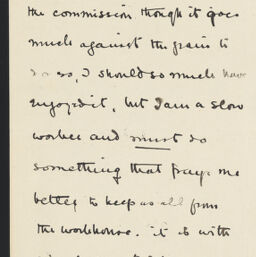 the commission though it goes
much against the grain to
do so, I should so much have
enjoyed it, but I am a slow
worker and must do
something that pays me
better to keep us all from
the workhouse. it is with